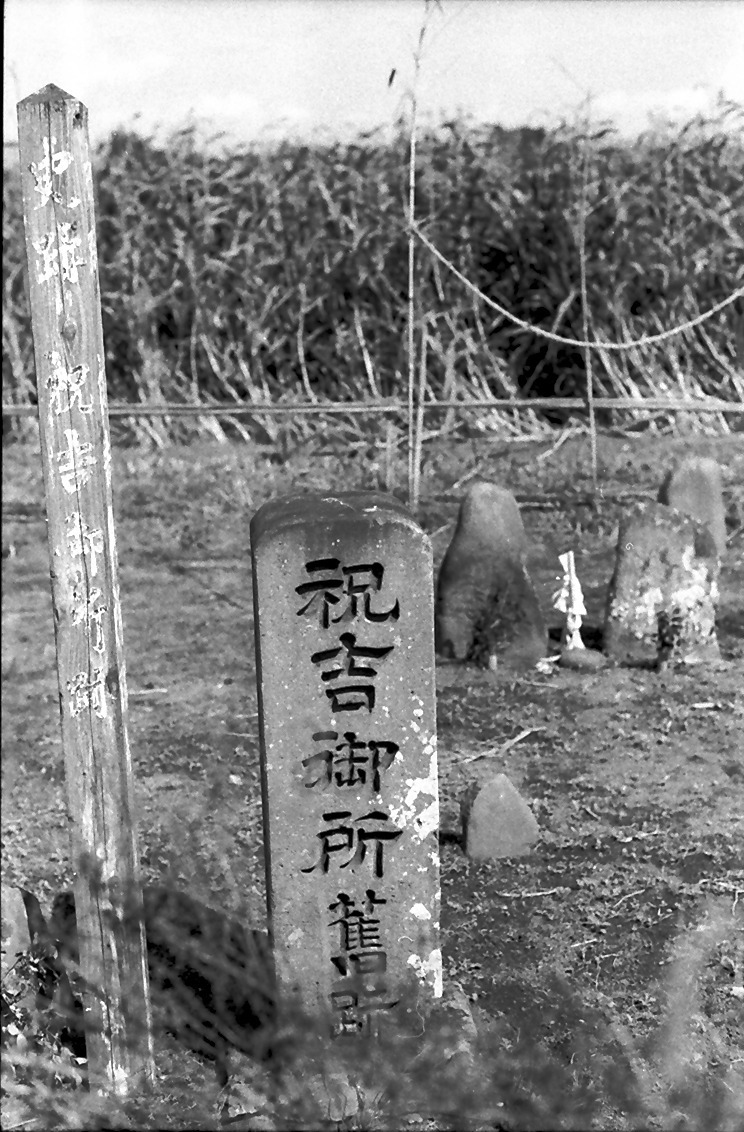 史跡祝吉御所
祝吉御所舊跡